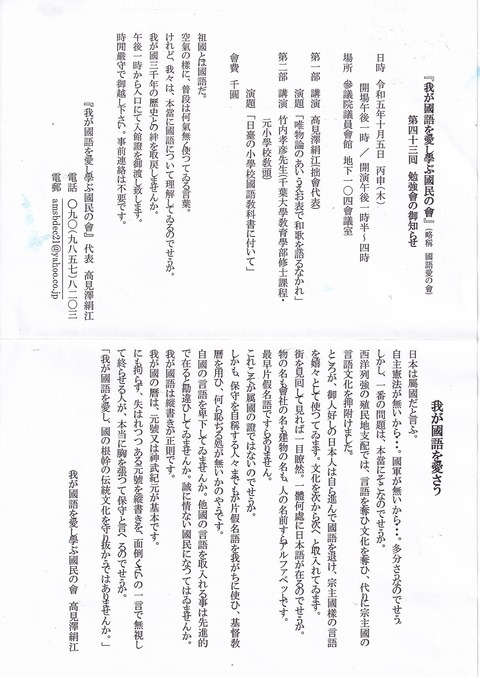 『我が國語を愛し學ぶ國民の會』(略稱 國語愛の會)
第四十三囘 勉強會の御知らせ
日時 令和五年十月五日 丙申(木)
開場午後一時／開演午後一時半～四時
場所 參議院議員會館 地下一〇四會議室
第一部 講演 高見澤絹江(拙會代表)
演題「唯物論のあいうえお表で和歌を語るなかれ」
第二部 講演 竹内孝彦先生(千葉大學敎育學部修士課程・
元小學校敎頭)
演題「日臺の小學校國語敎科書に付いて」
會費 千圓
祖國とは國語だ。
空氣の樣に、普段は何氣無く使つてゐる言葉。
けれど、我々は、本當に國語について理解してゐるのでせうか。
我が國三千年の歷史との絆を取戾しませんか。
午後一時から入口にて入館證を御渡し致します。
時間嚴守で御越し下さい。事前連絡は不要です。
『我が國語を愛し學ぶ國民の會』代表 高見澤絹江
電話 〇九〇(九八五七)八二〇三
電郵 amsbdec21@yahoo.co.jp
我が國語を愛さう
日本は屬國だと言ふ。
自主憲法が無いから・・。國軍が無いから・・。多分さうなのでせう。
しかし、一番の問題は、本當にそこなのでせうか。
西洋列强の殖民地支配では、言語を奪ひ文化を奪ひ、代りに宗主國の
言語文化を押附けました。
ところが、御人好しの日本人は自ら進んで國語を退け、宗主國樣の言語
を嬉々として使つてゐます。文化を次から次へと取入れてゐます。
街を見回して見れば一目瞭然。一體何處に日本語が在るのでせうか。
物の名も會社の名も建物の名も、人の名前すらアルファベットです。
最早片假名語ですらありません。
これこそが屬國の證ではないのでせうか。
しかも、保守を自稱する人々までもが片假名語を我がちに使ひ、基督敎
曆を用ひ、何ら恥ぢる處が無いかのやうです。
自國の言語を卑下してゐませんか。他國の言語を取入れる事は先進的
で在ると勘違ひしてゐませんか。誠に情ない國民になつてはゐませんか。
我が國語は縱書きが正則です。
我が國の曆は、元號又は神武紀元が基本です。
にも拘らず、失はれつつある元號を縱書きを、面倒くさいの一言で無視し
て終らせる人が、本當に胸を張つて保守と言へるのでせうか。
「我が國語を愛し、國の根幹の伝統文化を守り拔かうではありませんか。」
我が國語を愛し學ぶ國民の會 高見澤絹江